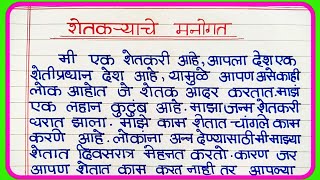 शेतकऱ्याचे मनोगत
मी एक शेतकरी आहे, आपला देश एक
शेतीप्रधान देश आहे, यामुळे आपण असे काही
लोक आहोत जे शेतक आदर करतात. माझं
एक लहान कुटुंब आहे. माझा जन्म शेतकरी
घरात झाला. माझे काम शेतात चांगले काम
करणे आहे. लोकांना अन्न देण्यासाठी मी माझ्या
शेतात दिवसरात्र मेहनत करतो. कारण जर
आपण शेतात काम करत नाही तर आपल्या